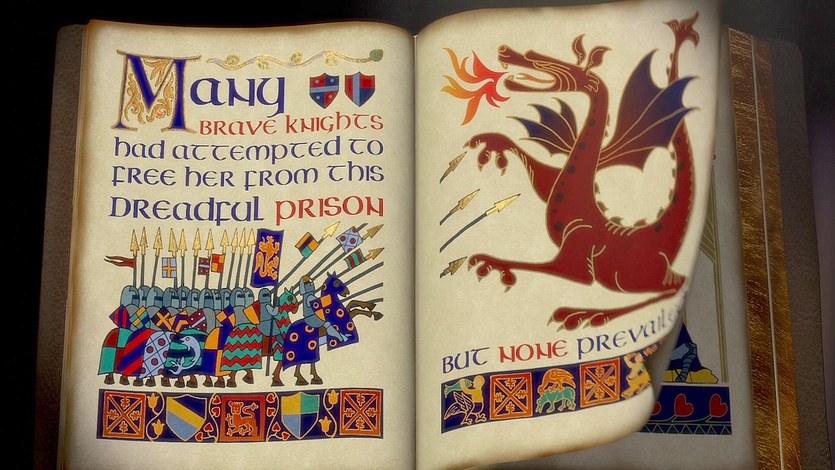 Many
BRAVE KNIGHTS
had attempted to
free her from this
dreadful prison
but none prevail